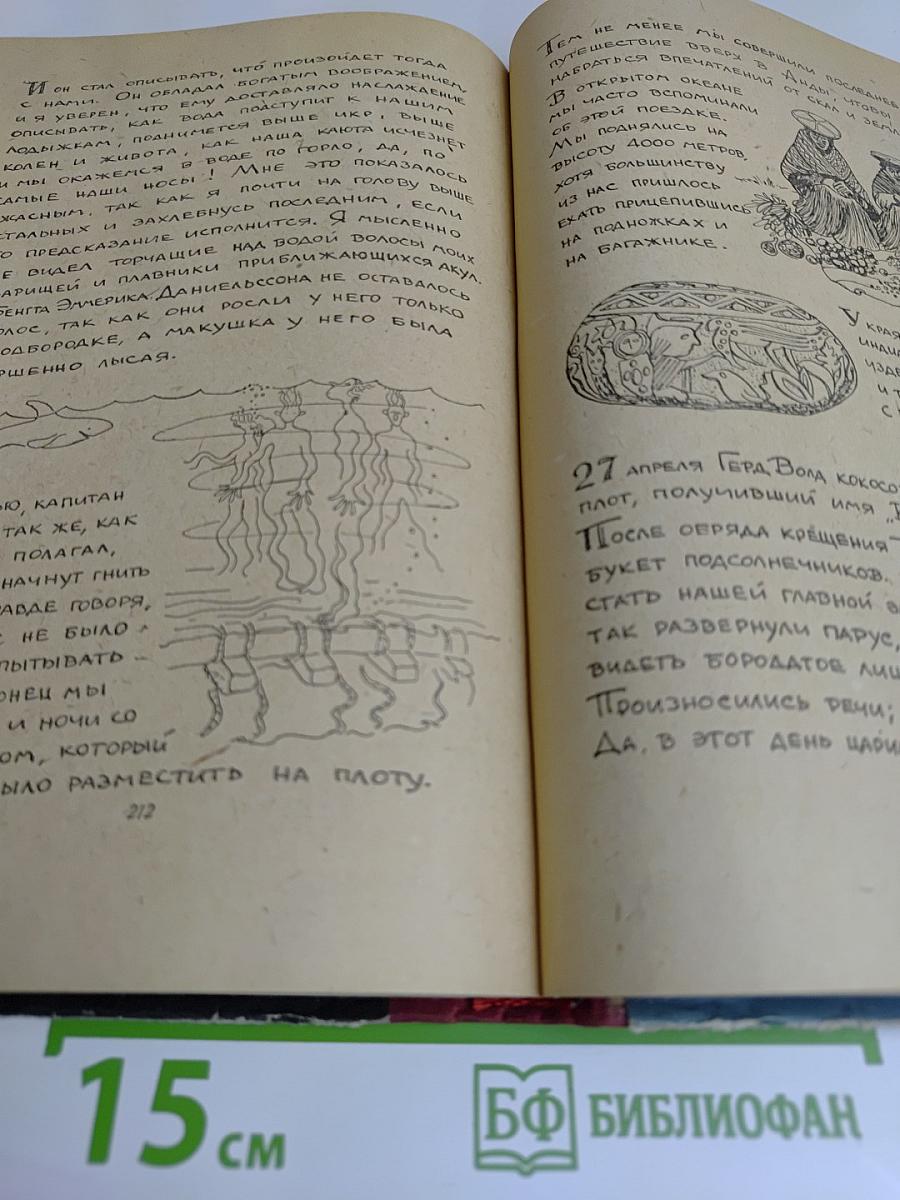 И он стал описывать, что произойдет тогда
с нами. Он обладал богатым воображением,
и я уверен, что ему доставляло наслаждение
описывать, как вода подступит к нашим
лодыжкам, поднимется выше икр, выше
колен и живота, как наша каюта исчезнет
и мы окажемся в воде по горло, да, по
самые наши носы! Мне это показалось
жасным, так как я почти на голову выше
стальных и захлебнусь последним, если
го предсказание исполнится. Я мысленно
е видел торчащие над водой волосы моих
варищей и плавники приближающихся акул.
Бенгта Эммерика Даниельссона не оставалось
олос, так как они росли у него только
одбородке, а макушка у него была
ршенно лысая.
ью, капитан
так же, как
полагал,
начнут гнить
авде говоря,
с не было
пытывать
онец мы
и ночи со
ом, который
ыло разместить на плоту.
212
Тем не менее мы совершили последнее
путешествие вверх в Анды чтобы
набраться впечатлений от скал и земл
В открытом океане
мы часто вспоминали
об этой поездке.
Мы поднялись на
высоту 4000 метров,
хотя большинству
из нас пришлось
ехать прицепившись
на подножках и
на багажнике.
У края
индиа
узде
и т
с н
27 апреля Герд Волд кокосо
плот, получивший имя „
После обряда крещения
букет подсолнечников.
стать нашей главной в
так развернули парус,
видеть бородатое лиц
Произносились речи;
Да, в этот день цари
15 см
БФ БИБЛИОФАН